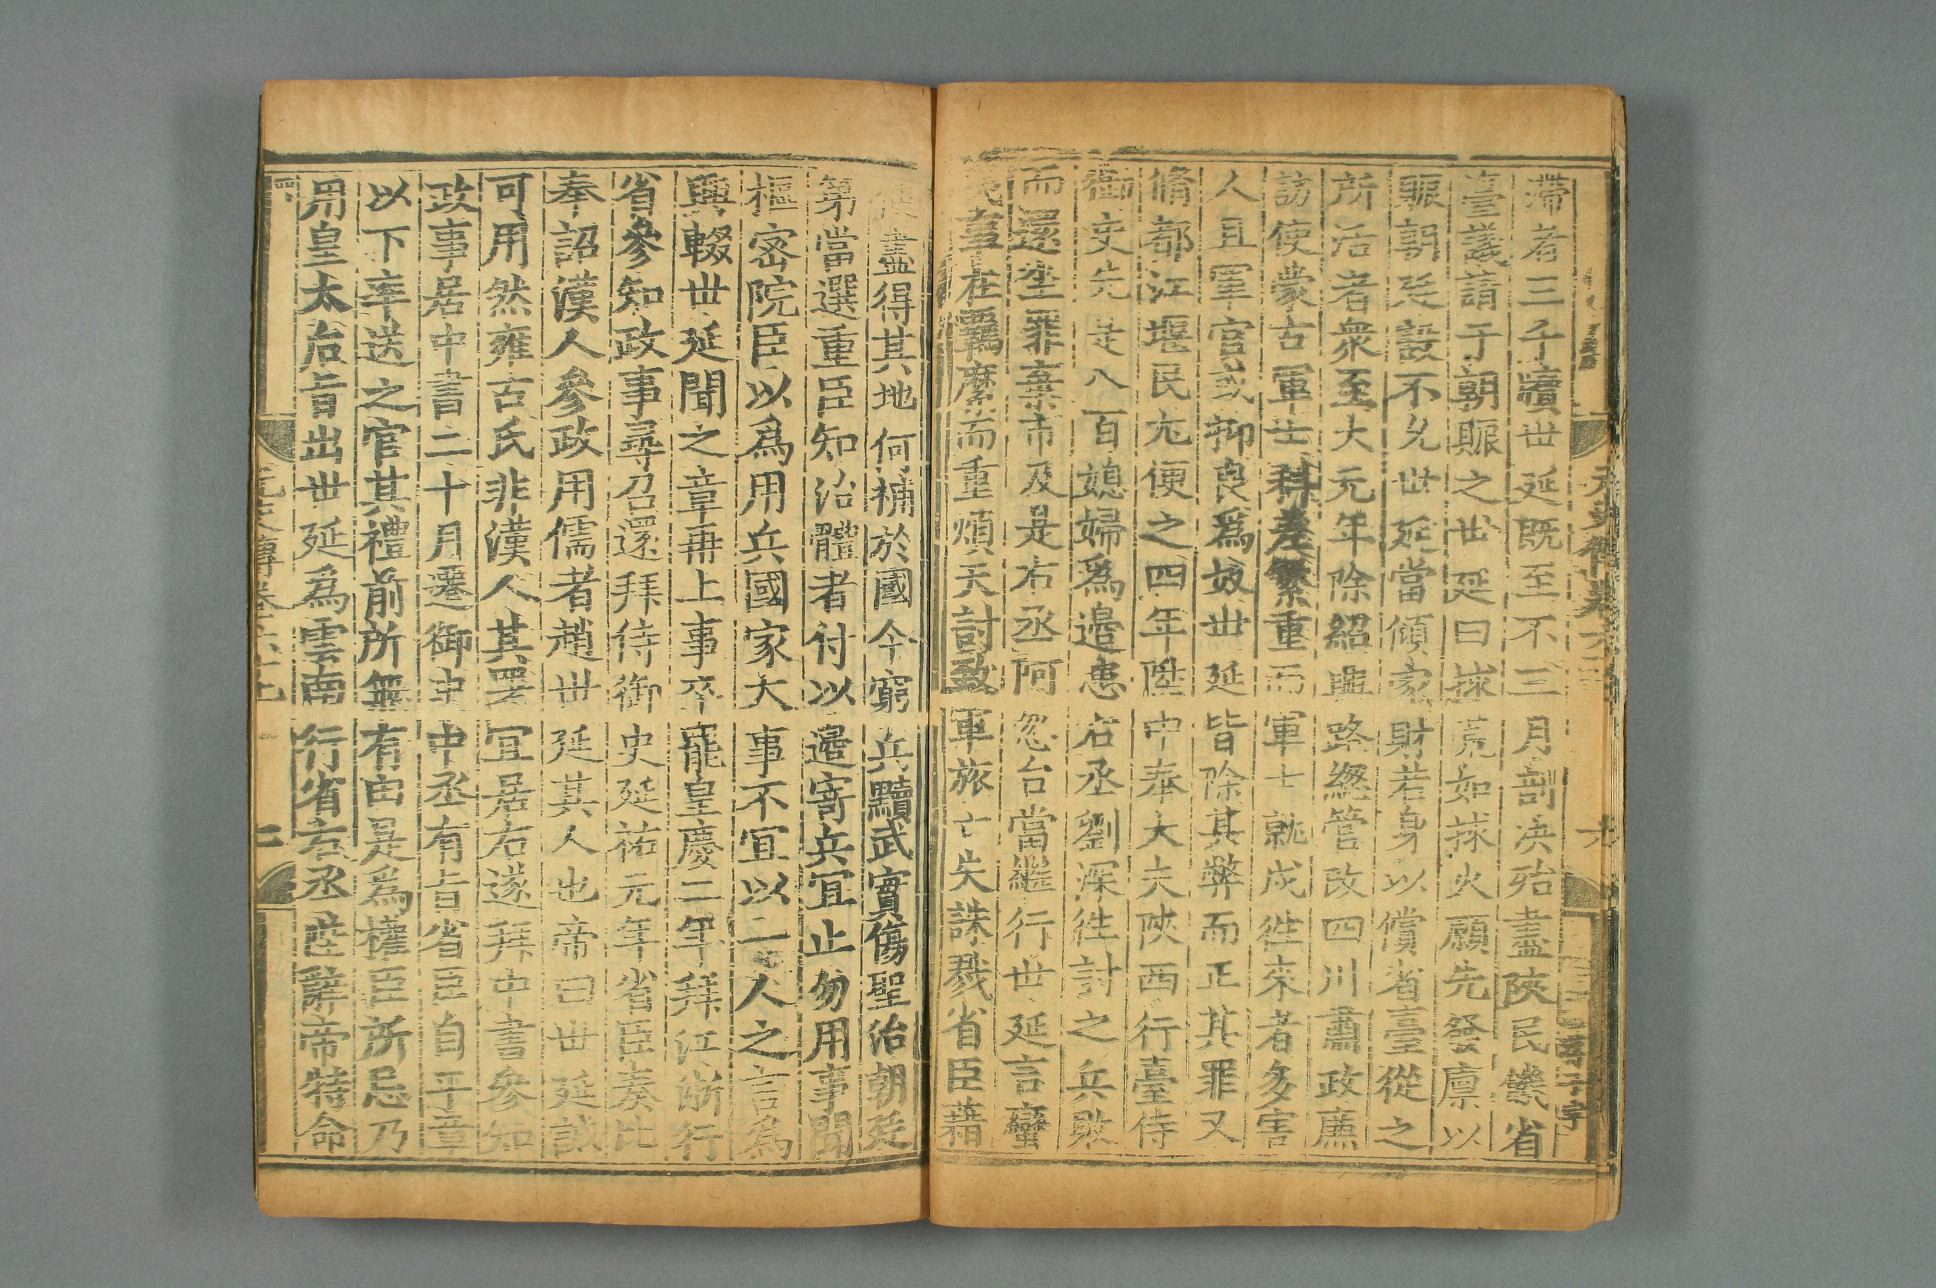 滯者三千牘世延既至不三月剖決殆盡陝民饑省
臺議請于朝賑之世延曰捄荒如捄火願先發廩以
賑朝廷設不允世延當傾家財若身以償省臺從之
所活者衆至大元年除紹興路總管改四川肅政廉
訪使蒙古軍士科差繁重而軍士就戍往來者多害
人且軍官或抑良爲奴世延皆除其弊而正其罪又
脩都江堰民尤便之四年陞中奉大夫陝西行臺侍
御史先是八百媳婦爲邊患右丞劉深往討之兵敗
而還坐罪棄市及是右丞阿忽台當繼行世延言蠻
夷事在羈縻而重煩天討致軍旅亡失誅戮省臣藉
使盡得其地何補於國今窮兵黷武實傷聖治朝廷
第當選重臣知治體者付以邊寄兵宜止勿用事聞
樞密院臣以爲用兵國家大事不宜以一二人之言爲
興輟世延聞之章再上事卒罷皇慶二年拜江浙行
省參知政事尋召還拜侍御史延祐元年省臣奏比
奉詔漢人參政用儒者趙世延其人也帝曰世延誠
可用然雍古氏非漢人其署宜居右遂拜中書參知
政事居中書二十月遷御史中丞有旨省臣自平章
以下率送之官其禮前所無有由是爲權臣所忌乃
用皇太后旨出世延爲雲南行省右丞陛辭帝特命